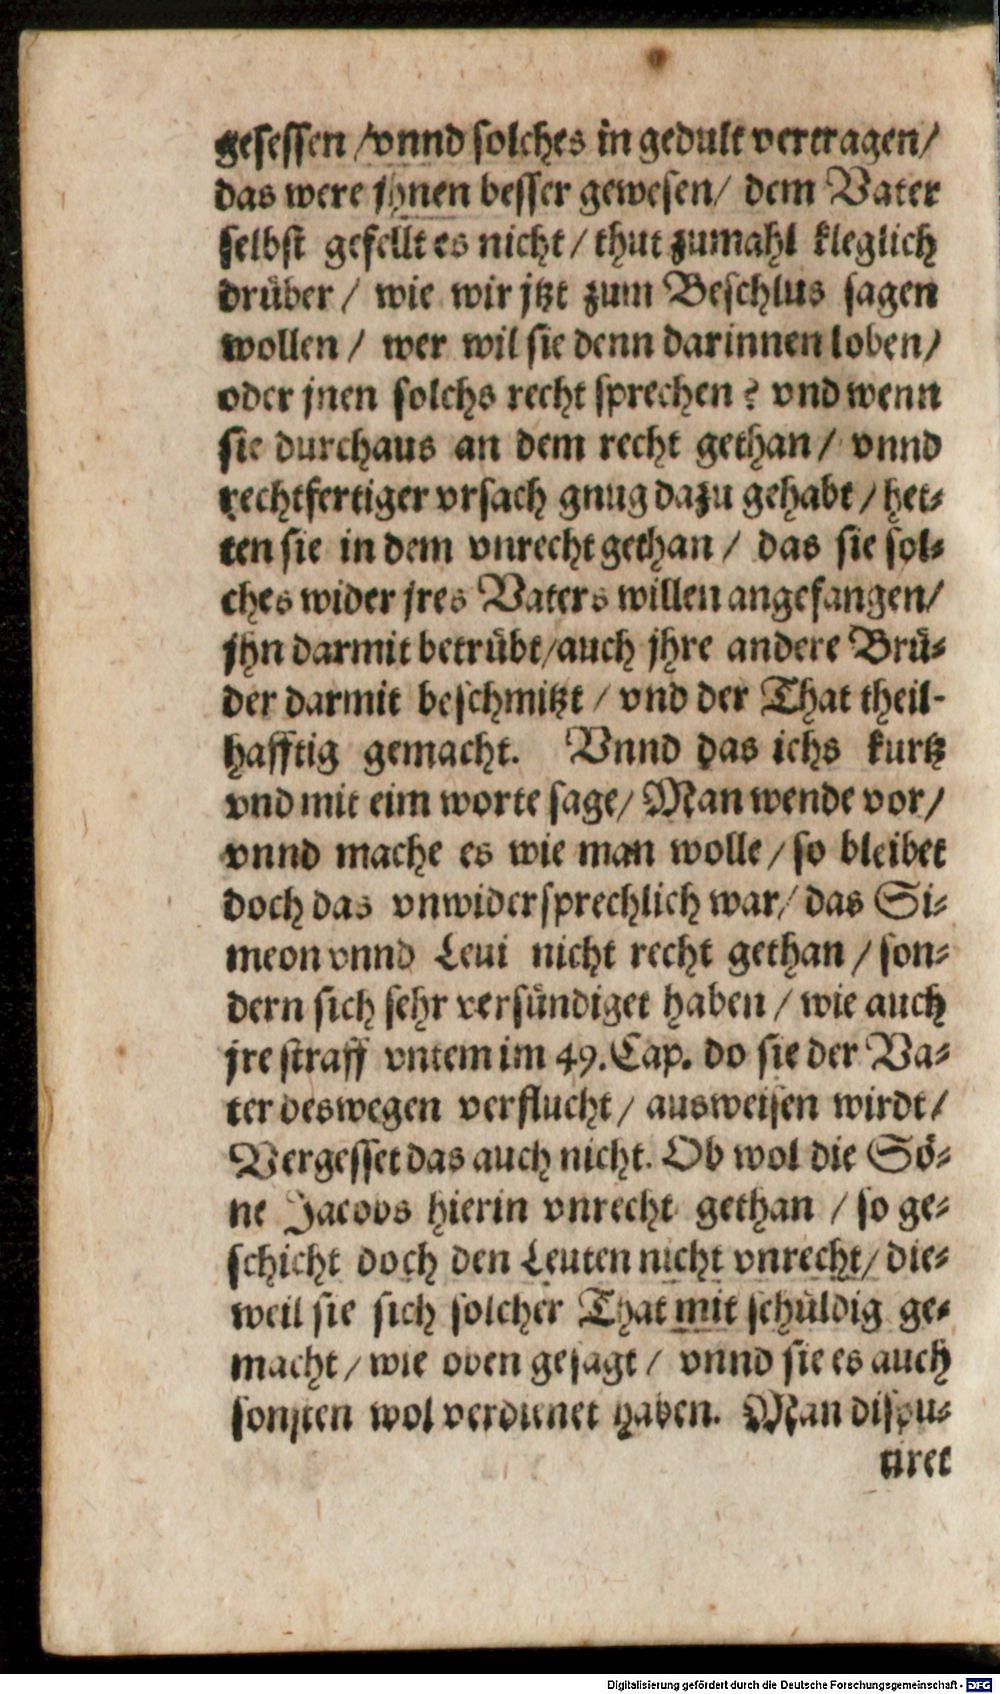 gesessen /vnnd solches in gedult vertragen/
das were jhnen besser gewesen/ dem Vater
selbst gefellt es nicht / thut zumahl kleglich
drüber / wie wir jtzt zum Beschlus sagen
wollen / wer wil sie denn darinnen loben/
oder jnen solchs recht sprechen? vnd wenn
sie durchaus an dem recht gethan / vnnd
rechtfertiger vrsach gnug dazu gehabt / het-
ten sie in dem vnrecht gethan / das sie sol-
ches wider jres Vaters willen angefangen/
jhn darmit betrübt/auch jhre andere Brü-
der darmit beschmitzt / vnd der That theil-
hafftig gemacht. Vnnd das ichs kurtz
vnd mit eim worte sage/ Man wende vor/
vnnd mache es wie man wolle / so bleibet
doch das vnwidersprechlich war/ das Si-
meon vnnd Leui nicht recht gethan / son-
dern sich sehr versündiget haben / wie auch
jre straff vntem im 49. Cap. do sie der Va-
ter deswegen verflucht / ausweisen wirdt/
Vergesset das auch nicht. Ob wol die Sö-
ne Jacobs hierin vnrecht gethan / so ge-
schicht doch den Leuten nicht vnrecht/ die-
weil sie sich solcher That mit schüldig ge-
macht / wie oben gesagt / vnnd sie es auch
sonsten wol verdienet haben. Man dispu-
tiret
Digitalisierung gefördert durch die Deutsche Forschungsgemeinschaft - DFG